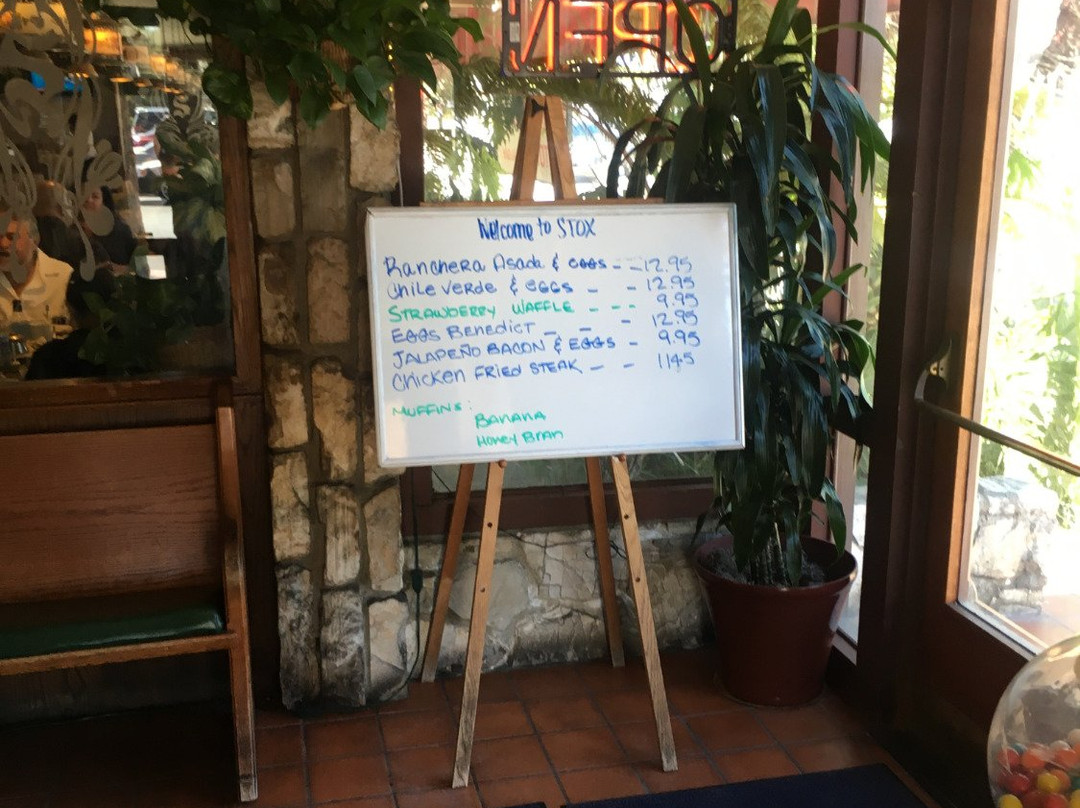 OPEN
Welcome to STOX
Ranchera Asada & eggs - - 12.95
Chile Verde & eggs - - 12.95
STRAWBERRY WAFFLE - - - 9.95
EGGS BENEDICT - - - 12.95
JALAPEÑO BACON & EGGS - 9.95
Chicken FRIED STEAK - - 11.45
MUFFINS:
BANANA
Honey Bran